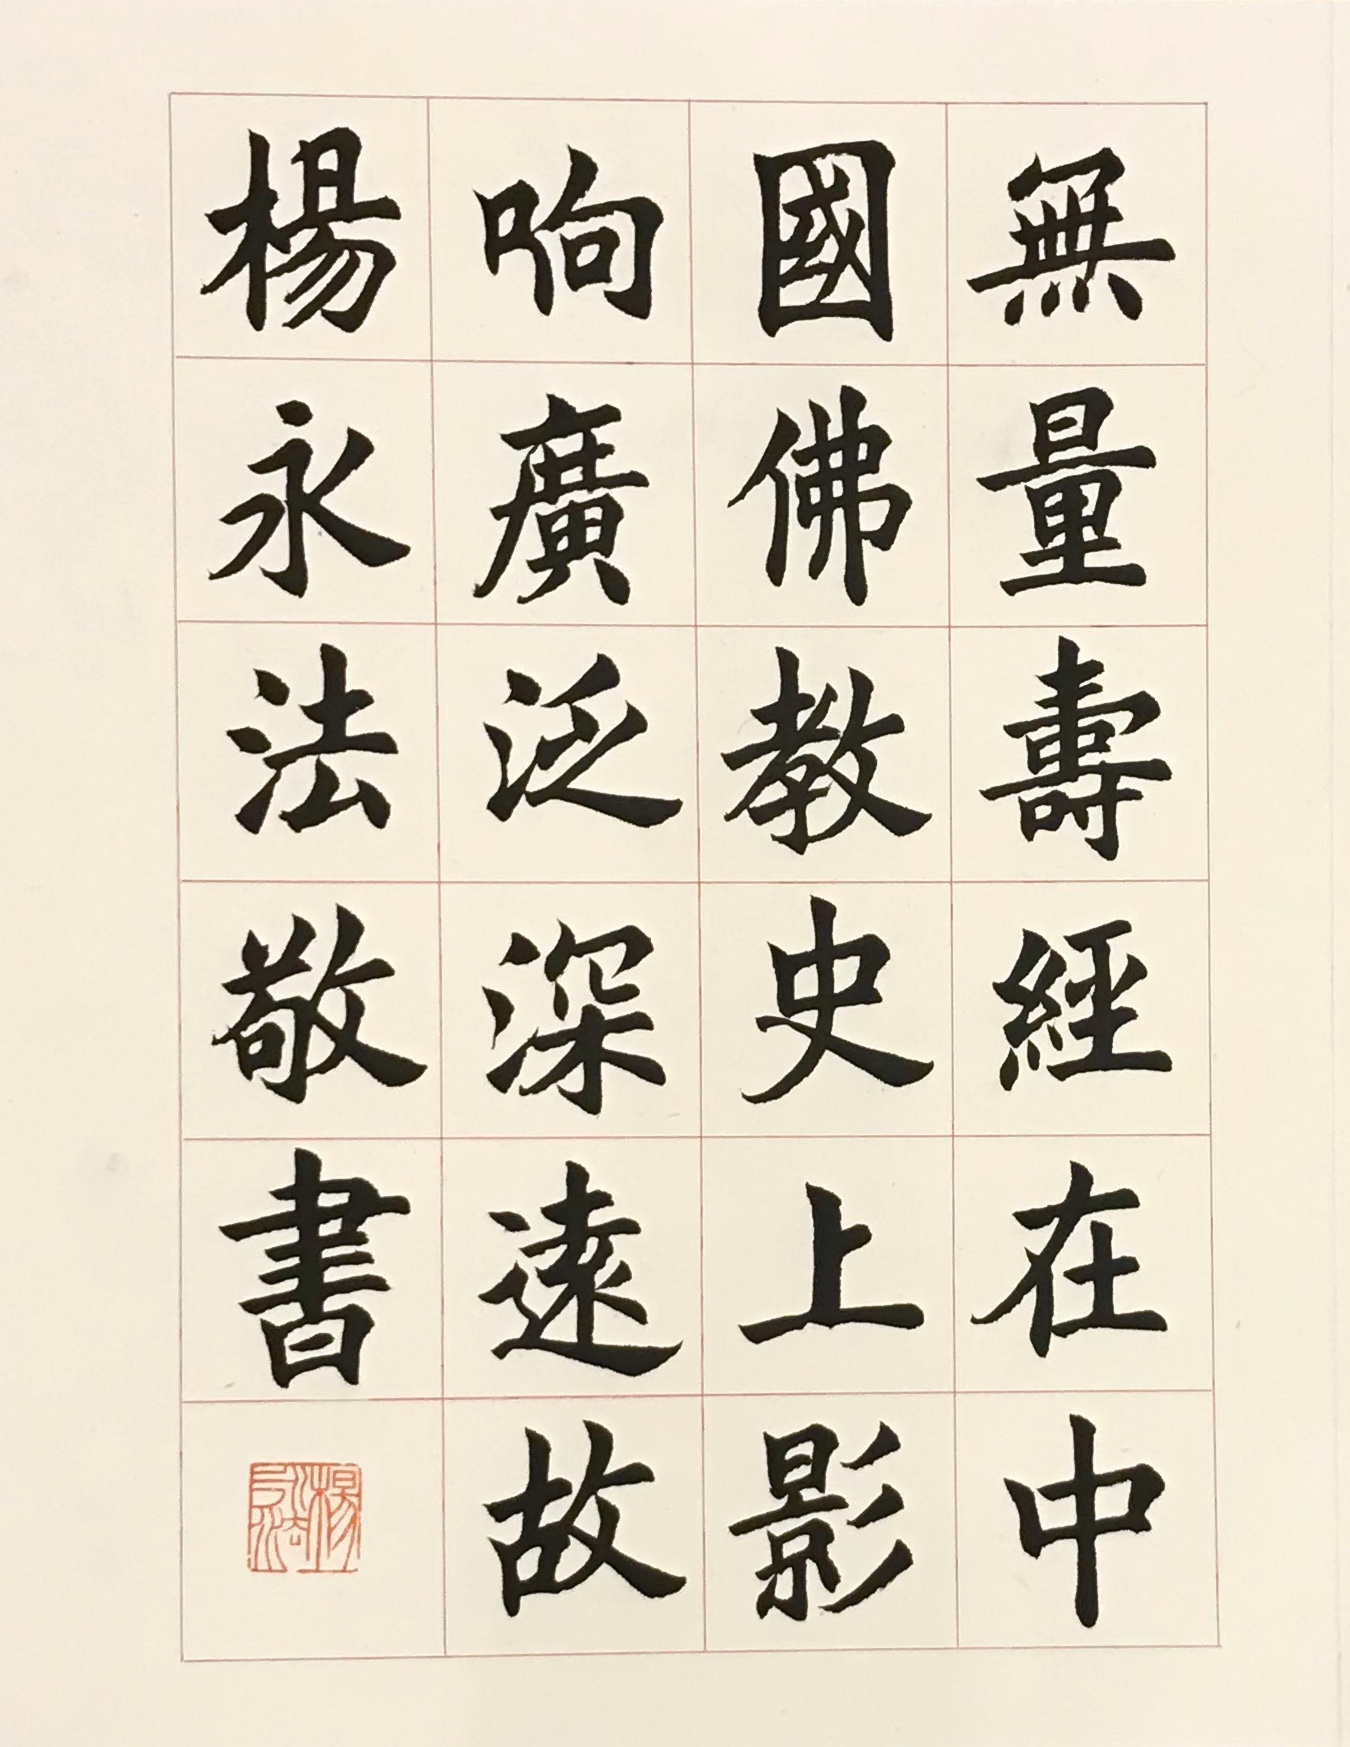 無量壽經在中
國佛教史上影
响廣泛深遠故
楊永法敬書